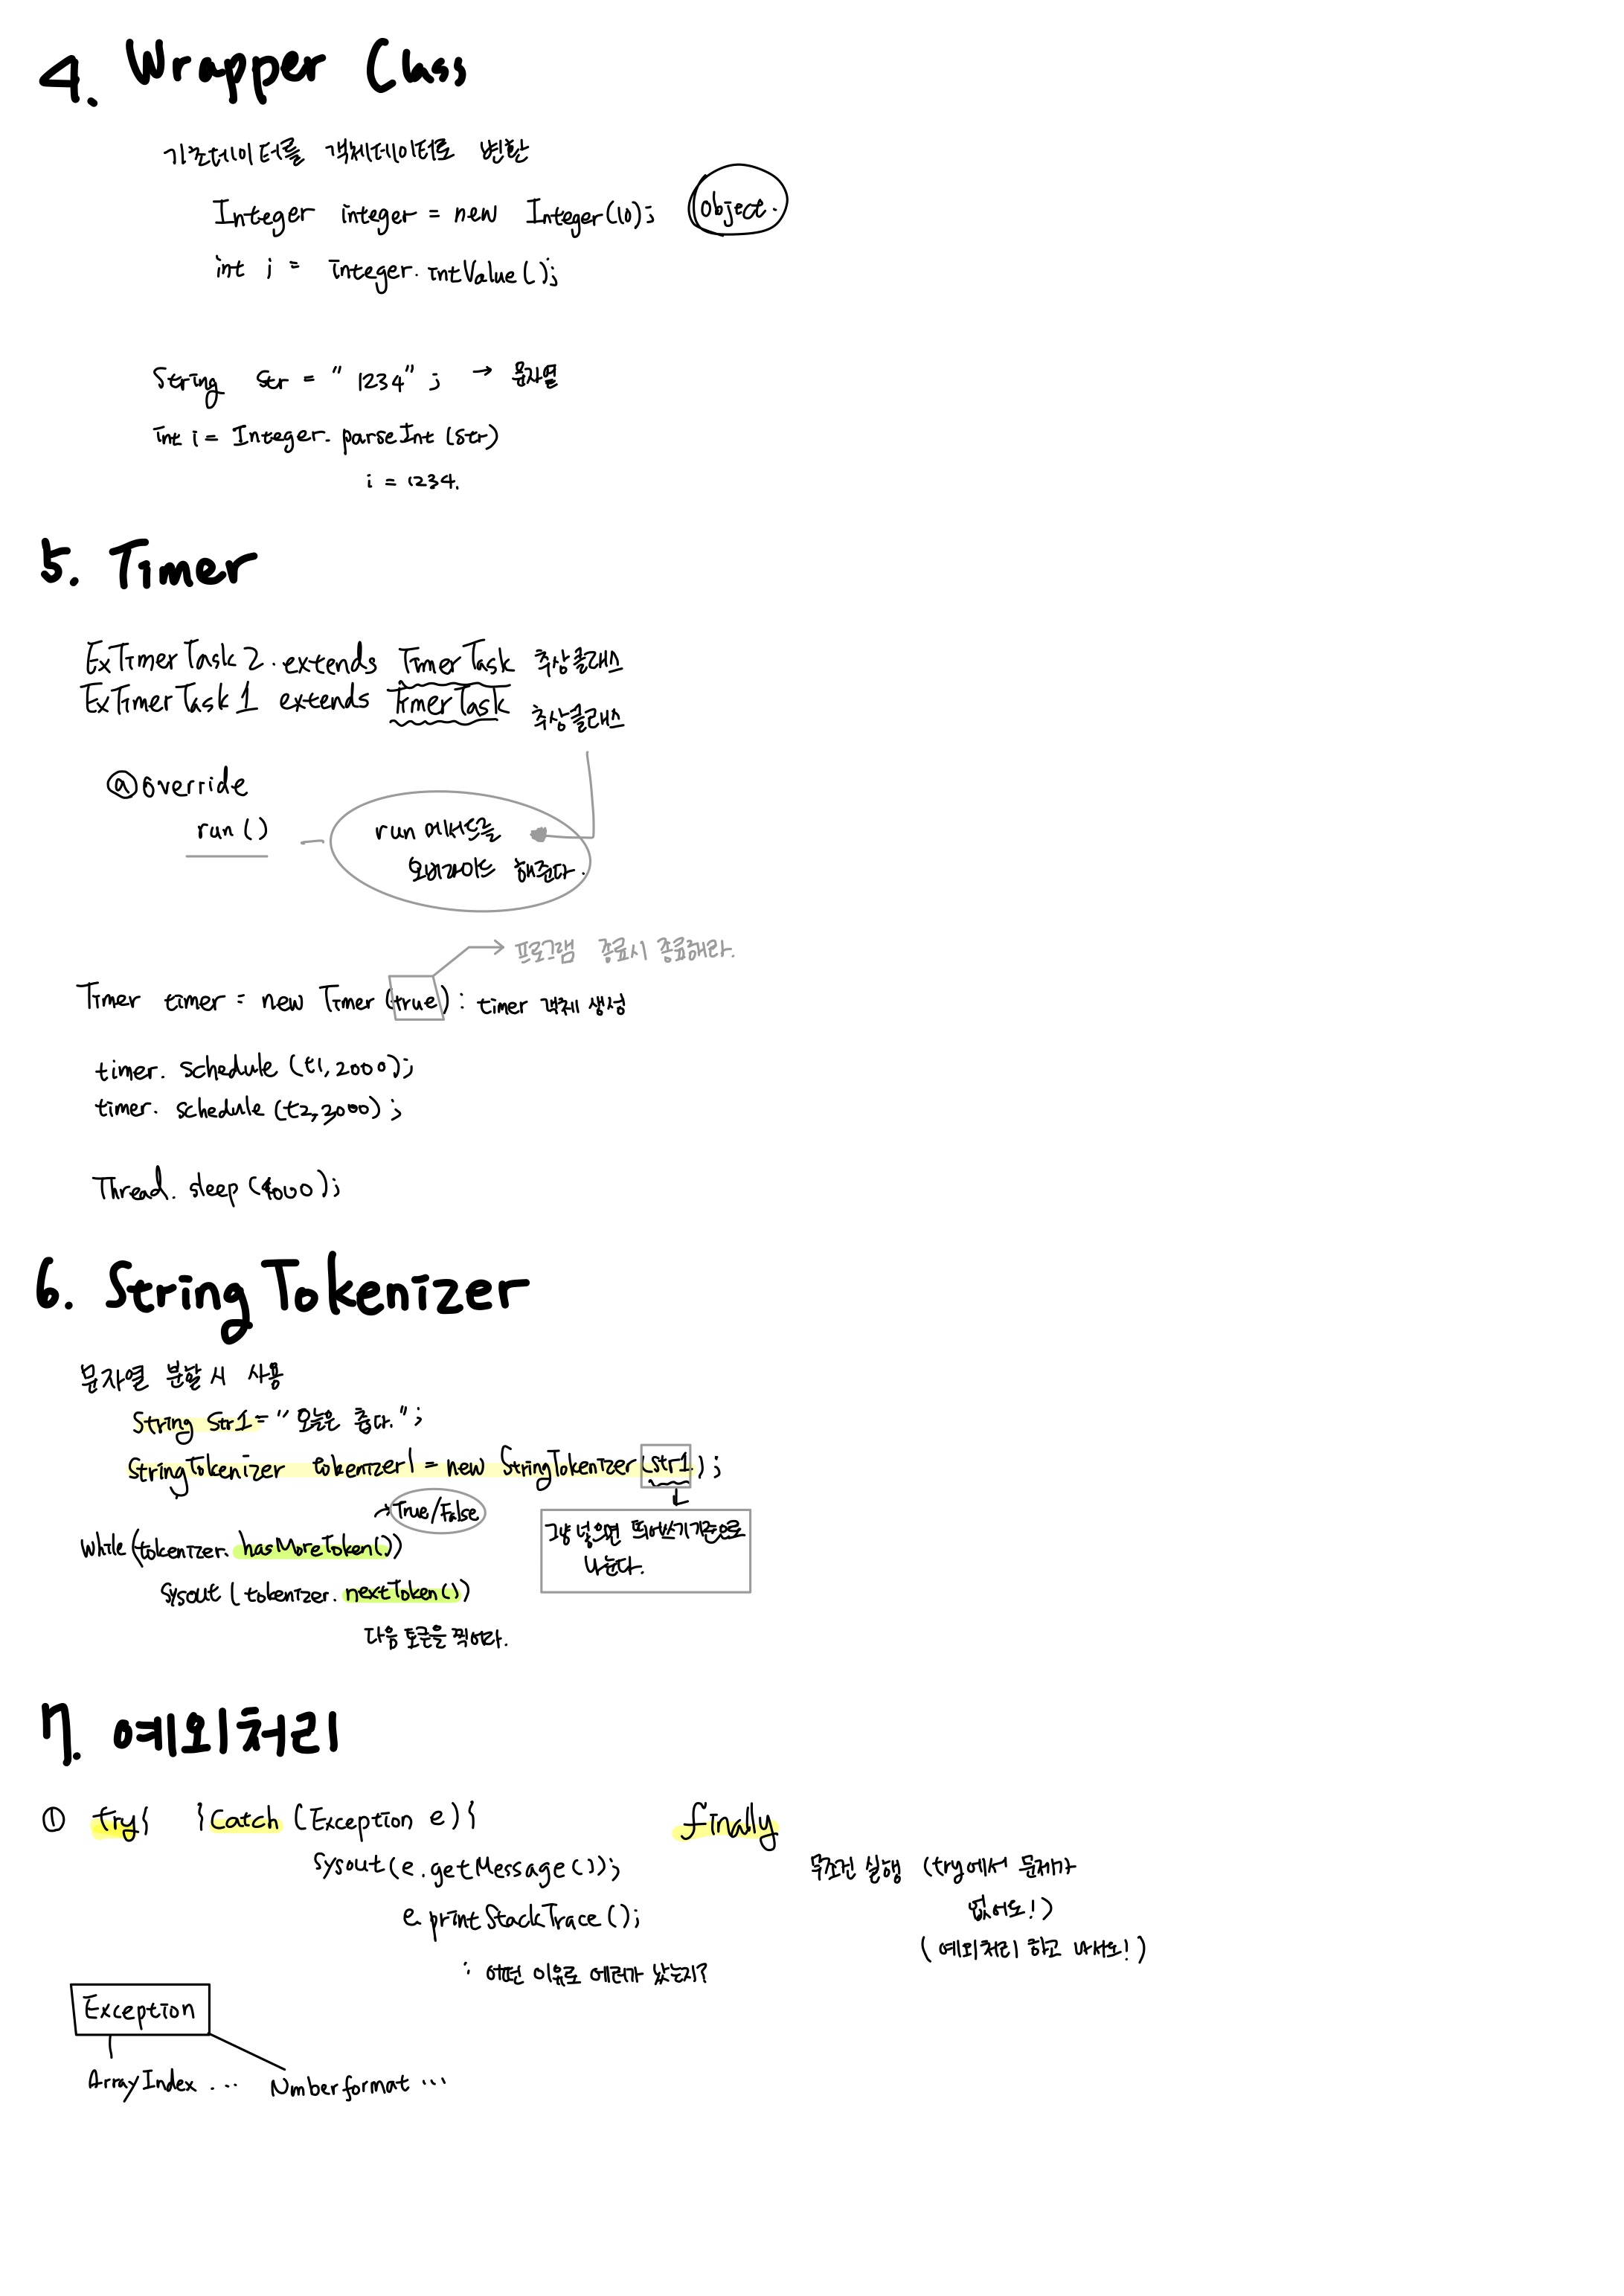 4. Wrapper Class
기초데이터를 객체데이터로 변환
Integer integer = new Integer(10); object.
int i = integer.intValue();
String str = "1234"; → 문자열
int i = Integer.parseInt(str)
i = 1234.
5. Timer
ExTimerTask2. extends TimerTask 추상클래스
ExTimerTask1 extends TimerTask 추상클래스
@override
run() - run 메서드를
오버라이드 해준다.
→ 프로그램 종료시 종료해라.
Timer timer = new Timer(true) : timer 객체 생성
timer. schedule (t1, 2000);
timer. schedule (t2, 3000);
Thread. sleep(4000);
6. StringTokenizer
문자열 분할 시 사용
String str1 = "오늘은 춥다.";
StringTokenizer tokenizer1 = new StringTokenizer(str1);
→ True/False
그냥 넣으면 띄어쓰기기준으로
나눈다.
while(tokenizer. hasMoreToken())
sysout (tokenizer. nextToken())
다음 토큰을 찍어라.
7. 예외처리
① try{ }catch (Exception e){ finally
sysout(e.getMessage()); 무조건 실행 (try에서 문제가
없어도!)
e.printStackTrace();
(예외처리 하고 나서도!)
: 어떤 이유로 에러가 났는지?
Exception
ArrayIndex ... Nmberformat ...